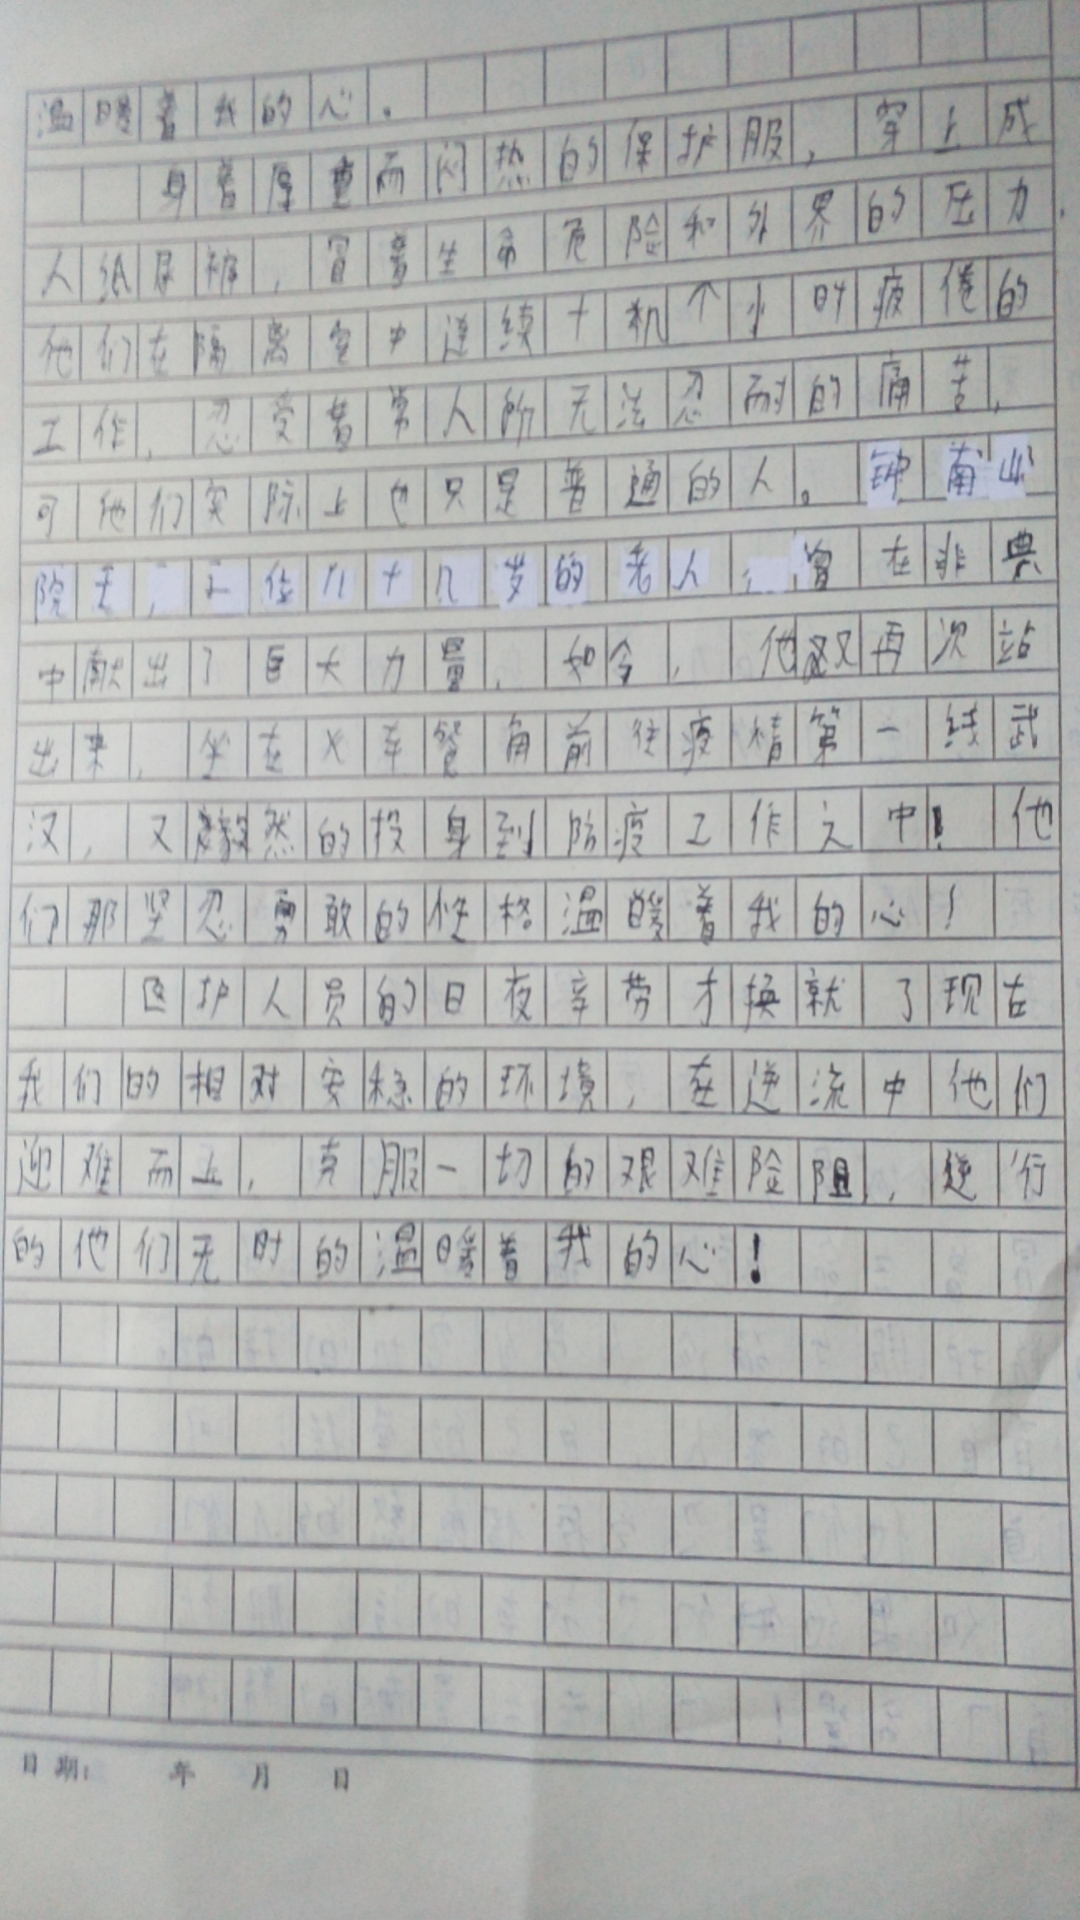 温暖着我的心。
身着厚重而闷热的保护服，穿上成
人纸尿裤，冒着生命危险和外界的压力，
他们在隔离室中连续十机个小时疲倦的
工作，忍受着常人所无法忍耐的痛苦，
可他们实际上也只是普通的人。钟南山
院士，一位八十几岁的老人，曾在非典
中献出了巨大力量，如今，他又再次站
出来，坐在火车餐角前往疫情第一线武
汉，又毅然的投身到防疫工作之中！他
们那坚忍勇敢的性格温暖着我的心！
医护人员的日夜辛劳才换就了现在
我们的相对安稳的环境，在逆流中他们
迎难而上，克服一切的艰难险阻，逆行
的他们无时的温暖着我的心！
日期： 年 月 日